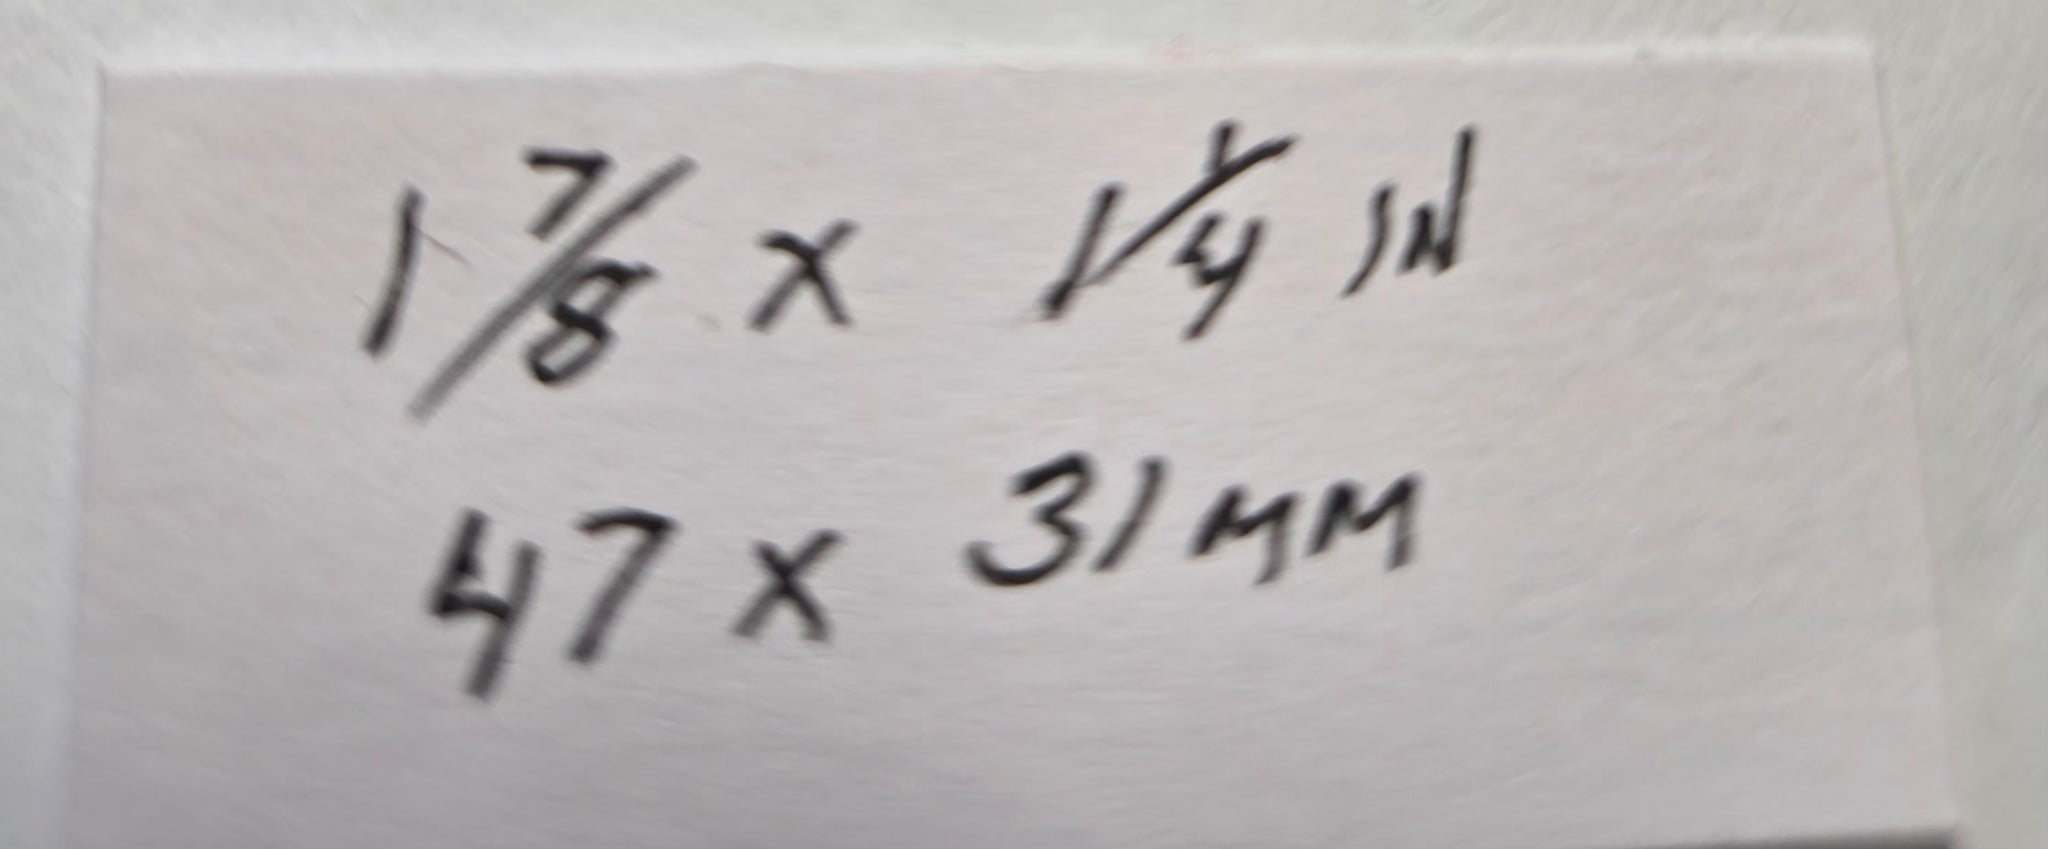 1 7/8 x 1 1/4 IN
47 x 31 MM